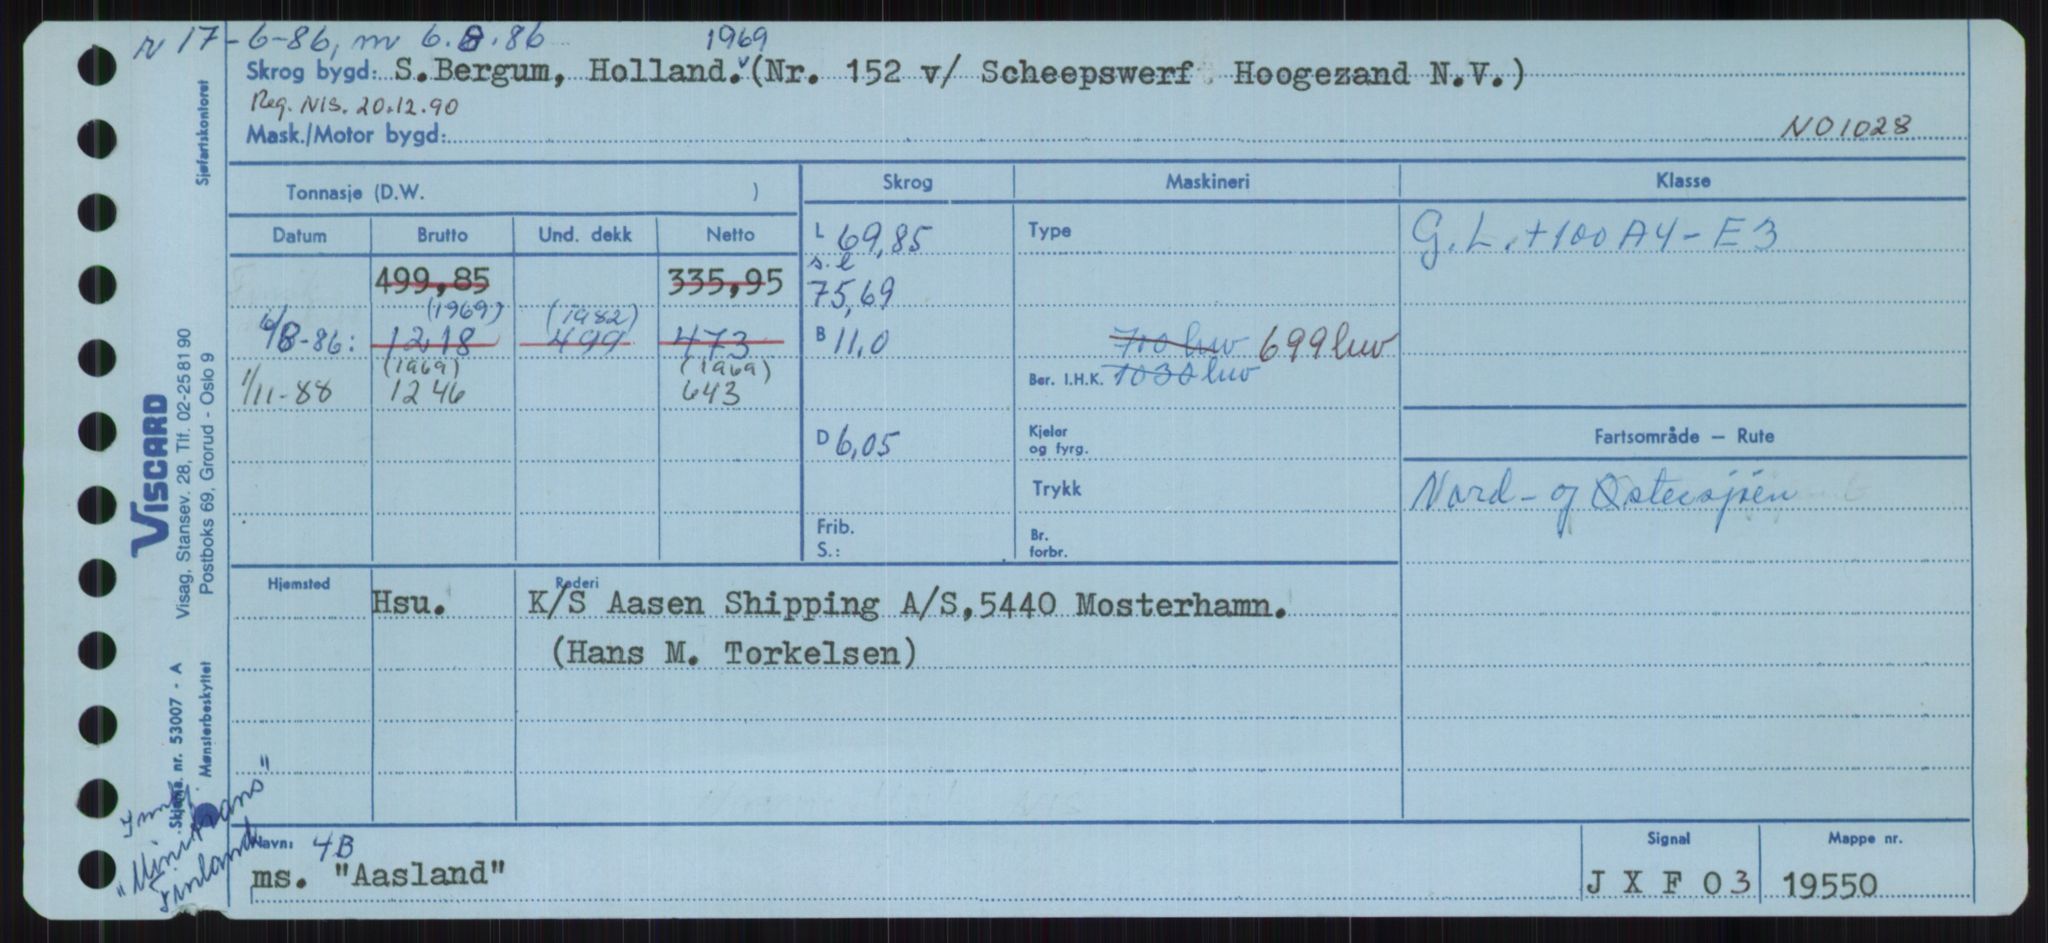 r 17-6-86, m 6.8.86 1969
Skrog bygd: S.Bergum, Holland.v(Nr. 152 v/ Scheepswerf Hoogezand N.V.)
Reg. NIS. 20.12.90
Mask./Motor bygd: NO1028
Sjøfartskontoret
Tonnasje (D.W. )
Skrog Maskineri Klasse
Datum Brutto Und. dekk Netto
L 69,85
Type
G.L.+100 A4-E3
s.l
499,85 335,95
75,69
(1969) (1982)
6/8-86: 1218 499 473
B 11,0
700 hw 699 hw
(1969) (1969)
Ber. I.H.K. 1030 hw
1/11-88 1246 643
D 6,05
Kjeler
og fyrg.
Fartsområde – Rute
Trykk
Nord- og Østersjøen
Frib.
S.:
Br.
forbr.
Hjemsted Rederi
Hsu. K/S Aasen Shipping A/S,5440 Mosterhamn.
(Hans M. Torkelsen)
VISCARD
Visag, Stansev. 28, Tlf. 02-258190
Postboks 69, Grorud - Oslo 9
Skjema. nr. 53007 - A
Mønsterbeskyttet
"Minitrans"
Finland
Navn: 4B
ms. "Aasland"
Signal
J X F O 3
Mappe nr.
19550